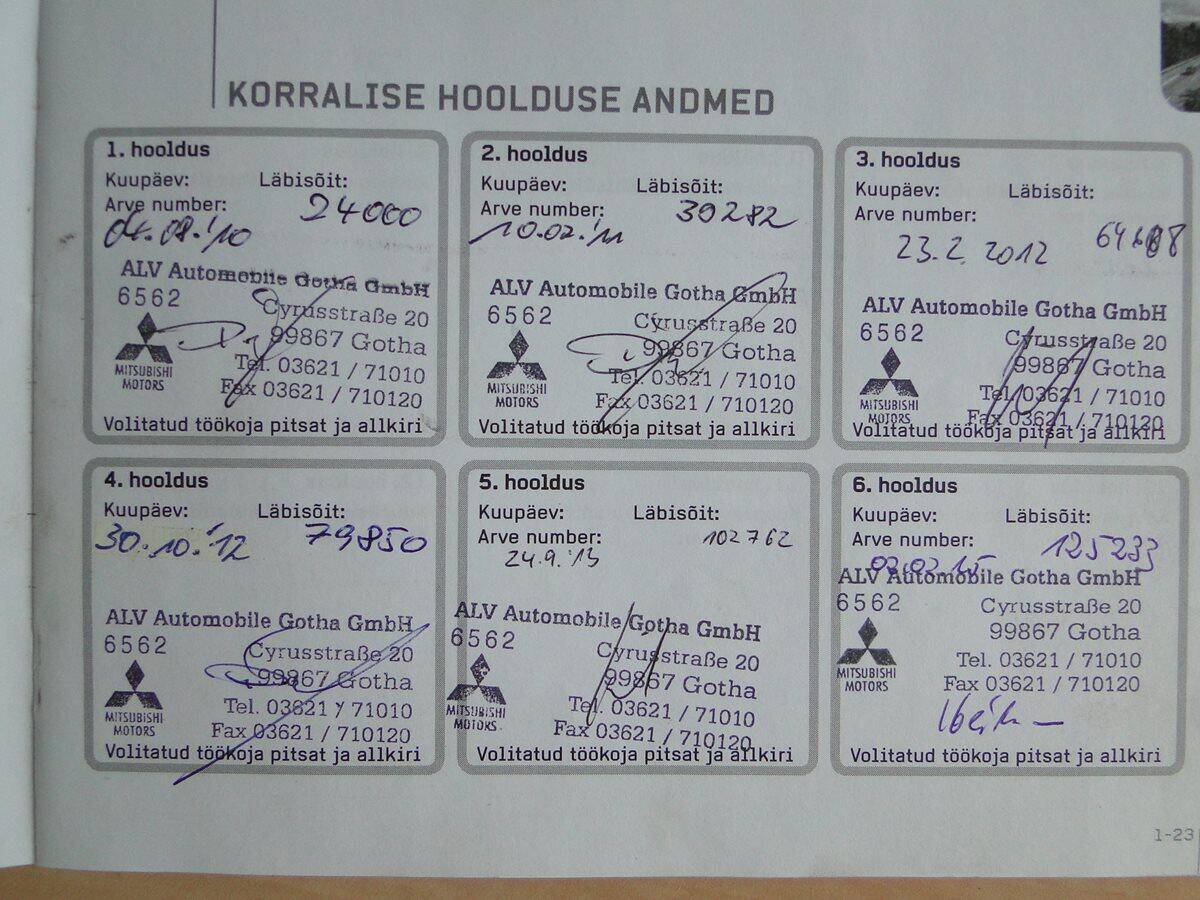 KORRALISE HOOLDUSE ANDMED
1. hooldus
Kuupäev: Läbisõit:
Arve number: 24000
04.08.'10
ALV Automobile Gotha GmbH
6562 Cyrusstraße 20
99867 Gotha
MITSUBISHI MOTORS
Tel. 03621 / 71010
Fax 03621 / 710120
Volitatud töökoja pitsat ja allkiri
2. hooldus
Kuupäev: Läbisõit:
Arve number: 39282
10.02.'11
ALV Automobile Gotha GmbH
6562 Cyrusstraße 20
99867 Gotha
MITSUBISHI MOTORS
Tel. 03621 / 71010
Fax 03621 / 710120
Volitatud töökoja pitsat ja allkiri
3. hooldus
Kuupäev: Läbisõit:
Arve number:
23.2.2012
ALV Automobile Gotha GmbH
6562 Cyrusstraße 20
99867 Gotha
MITSUBISHI MOTORS
Tel. 03621 / 71010
Fax 03621 / 710120
Volitatud töökoja pitsat ja allkiri
4. hooldus
Kuupäev: Läbisõit:
30.10.'12 79850
ALV Automobile Gotha GmbH
6562 Cyrusstraße 20
99867 Gotha
MITSUBISHI MOTORS
Tel. 03621 / 71010
Fax 03621 / 710120
Volitatud töökoja pitsat ja allkiri
5. hooldus
Kuupäev: Läbisõit:
Arve number: 102762
24.9.'13
ALV Automobile Gotha GmbH
6562 Cyrusstraße 20
99867 Gotha
MITSUBISHI MOTORS
Tel. 03621 / 71010
Fax 03621 / 710120
Volitatud töökoja pitsat ja allkiri
6. hooldus
Kuupäev: Läbisõit:
Arve number: 125233
02.02.15
ALV Automobile Gotha GmbH
6562 Cyrusstraße 20
99867 Gotha
MITSUBISHI MOTORS
Tel. 03621 / 71010
Fax 03621 / 710120
Volitatud töökoja pitsat ja allkiri
1-23